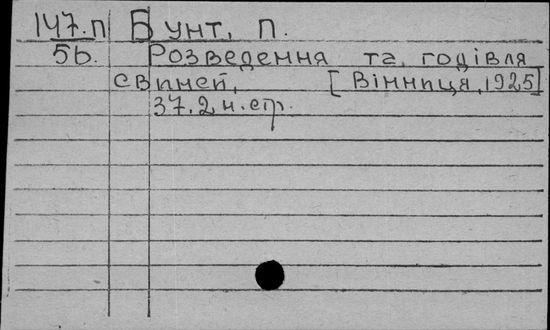 147.п Бунт, П.
5б. Розведення та годівля
свиней, [Вінниця, 1925]
37.2 н. стр.